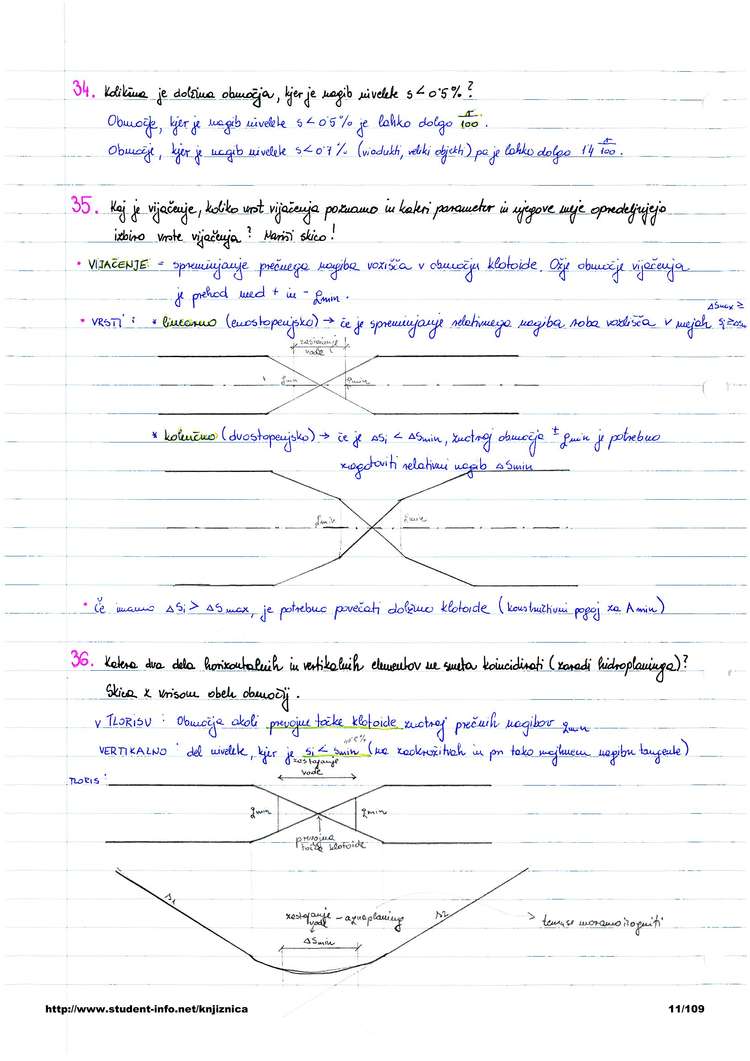 34. Kolikšna je dolžina območja, kjer je nagib nivelete s < 0'5 % ?
Območje, kjer je nagib nivelete s < 0'5 % je lahko dolgo π/100.
Območje, kjer je nagib nivelete s < 0'7 % (viadukti, veliki objekti) pa je lahko dolgo 1'4 π/100.
35. Kaj je vijačenje, koliko vrst vijačenja poznamo in kateri parameter in njegove meje opredeljujejo
izbiro vrste vijačenja? Nariši skico!
• VIJAČENJE = spreminjanje prečnega nagiba vozišča v območju klotoide. Ožje območje vijačenja
je prehod med + in - qmin.
ΔSmax ≥
• VRSTI: * linearno (enostopenjsko) → če je spreminjanje relativnega nagiba roba vozlišča v mejah
zastajanje
vode
qmin qmin
* kolenčno (dvostopenjsko) → če je ΔSi < ΔSmin, znotraj območja ± qmin je potrebno
zagotoviti relativni nagib ΔSmin
qmin qmin
• Če imamo ΔSi > ΔSmax, je potrebno povečati dolžino klotoide (konstruktivni pogoj za Amin)
36. Katera dva dela horizontalnih in vertikalnih elementov ne smeta koincidirati (zaradi hidroplaninga)?
Skica z vrisom obeh območij.
V TLORISU: Območja okoli prevojne točke klotoide znotraj prečnih nagibov qmin
VERTIKALNO: del nivelete, kjer je si < smin (na zaokrožitvah in pri tako majhnem nagibu tangente)
zastajanje
vode
TLORIS:
qmin qmin
prevojna
točka klotoide
s1 s2
zastajanje
vode - aquaplaning
→ temu se moramo izogniti
ΔSmin
http://www.student-info.net/knjiznica 11/109